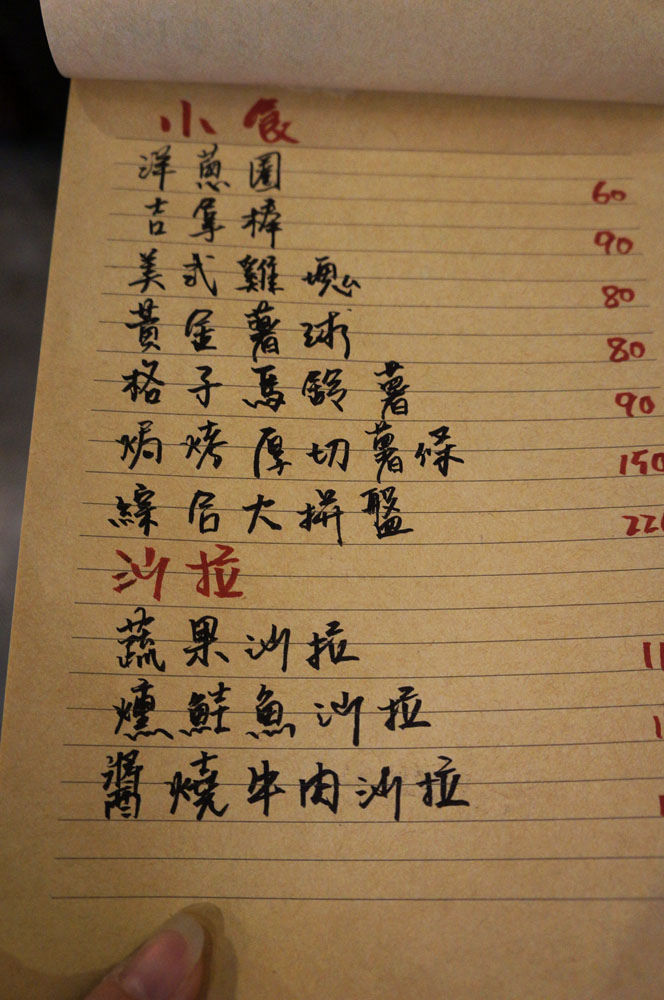 小食
洋蔥圈 60
吉拿棒 90
美式雞塊 80
黃金薯球 80
格子馬鈴薯 90
焗烤厚切薯條 150
綜合大拼盤
沙拉
蔬果沙拉
燻鮭魚沙拉
醬燒牛肉沙拉